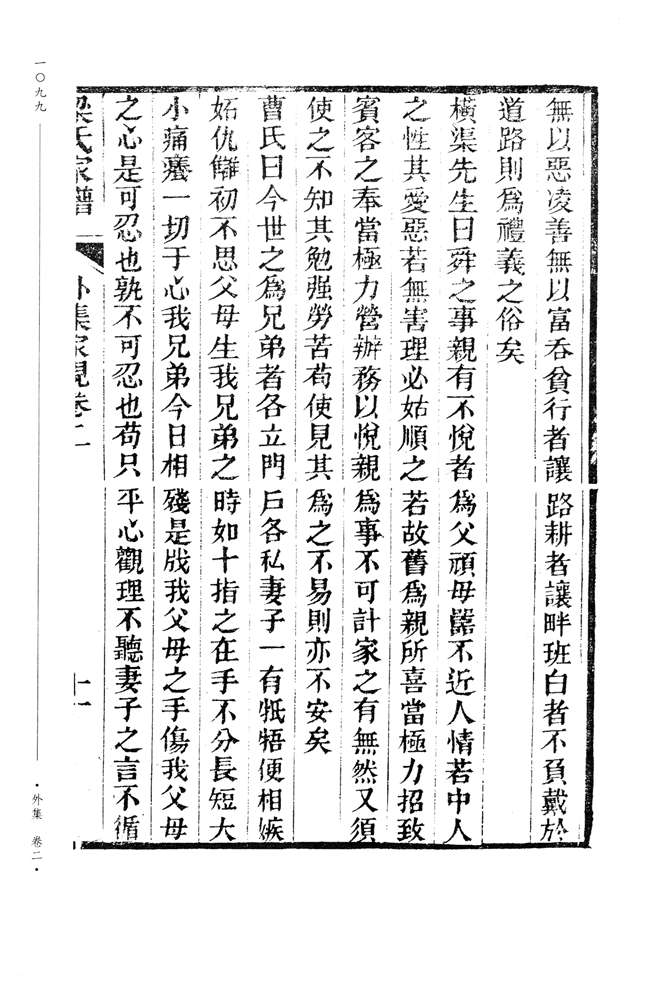 無以惡凌善無以富吞貧行者讓路耕者讓畔班白者不負戴於
道路則爲禮義之俗矣
橫渠先生曰舜之事親有不悅者爲父頑母嚚不近人情若中人
之性其愛惡若無害理必姑順之若故舊爲親所喜當極力招致
賓客之奉當極力營辦務以悅親爲事不可計家之有無然又須
使之不知其勉强勞苦苟使見其爲之不易則亦不安矣
曹氏曰今世之爲兄弟者各立門戶各私妻子一有牴牾便相嫉
妬仇讎初不思父母生我兄弟之時如十指之在手不分長短大
小痛癢一切于心我兄弟今日相殘是戕我父母之手傷我父母
之心是可忍也孰不可忍也苟只平心觀理不聽妻子之言不循
梁氏家譜
外集家規卷二
十一
一〇九九
・外集 卷二・